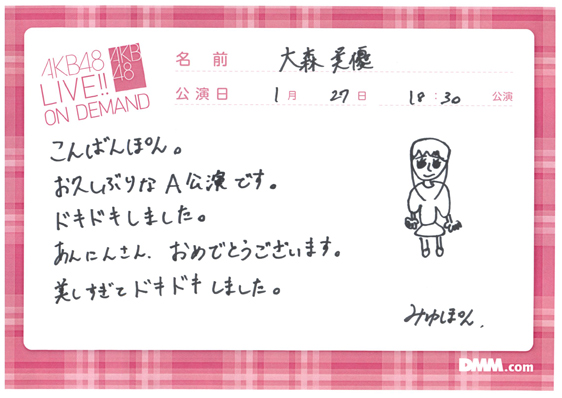 AKB48
LIVE!!
ON DEMAND
AKB
48
名前 大森美優
公演日 1月 27日 18:30 公演
こんばんぽん。
お久しぶりなA公演です。
ドキドキしました。
あんにんさん、おめでとうございます。
美しすぎてドキドキしました。
みゆぽん.
DMM.com